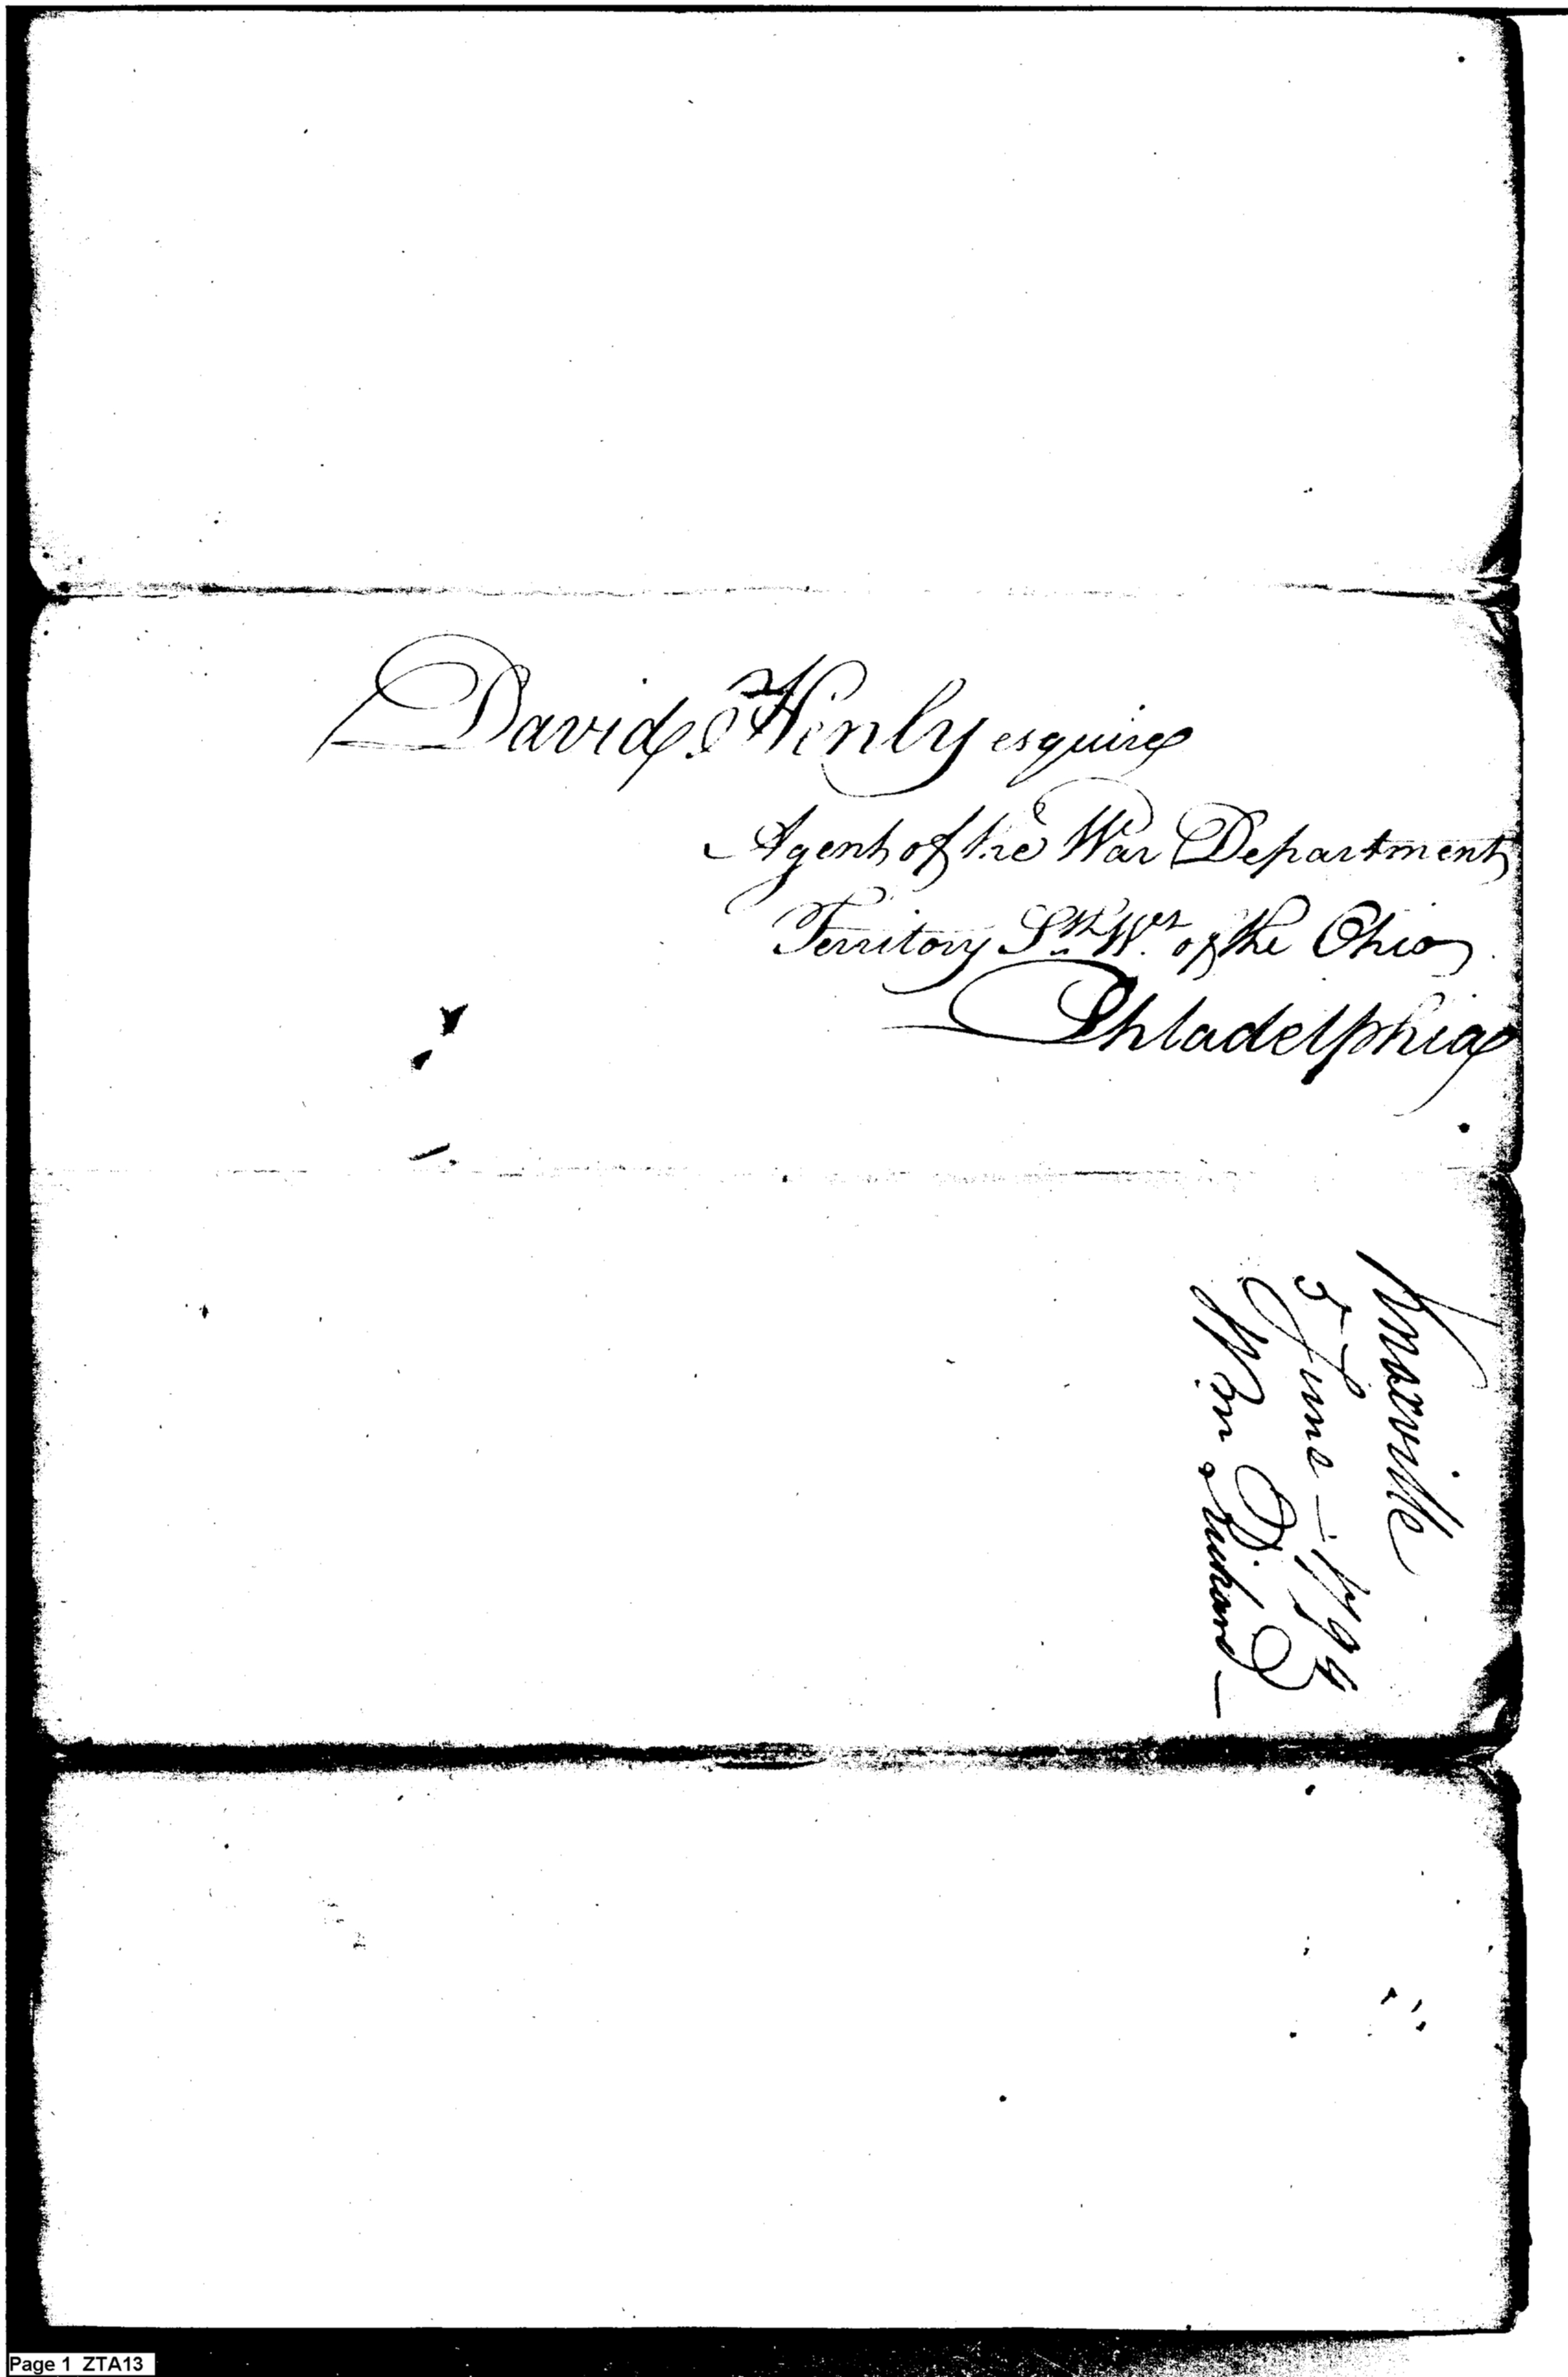 David Henly esquire
Agent of the War Department
Territory Sth Wt of the Ohio
Phladelphia
Knoxville
5 June - 1794
Wm
Page 1 ZTA13